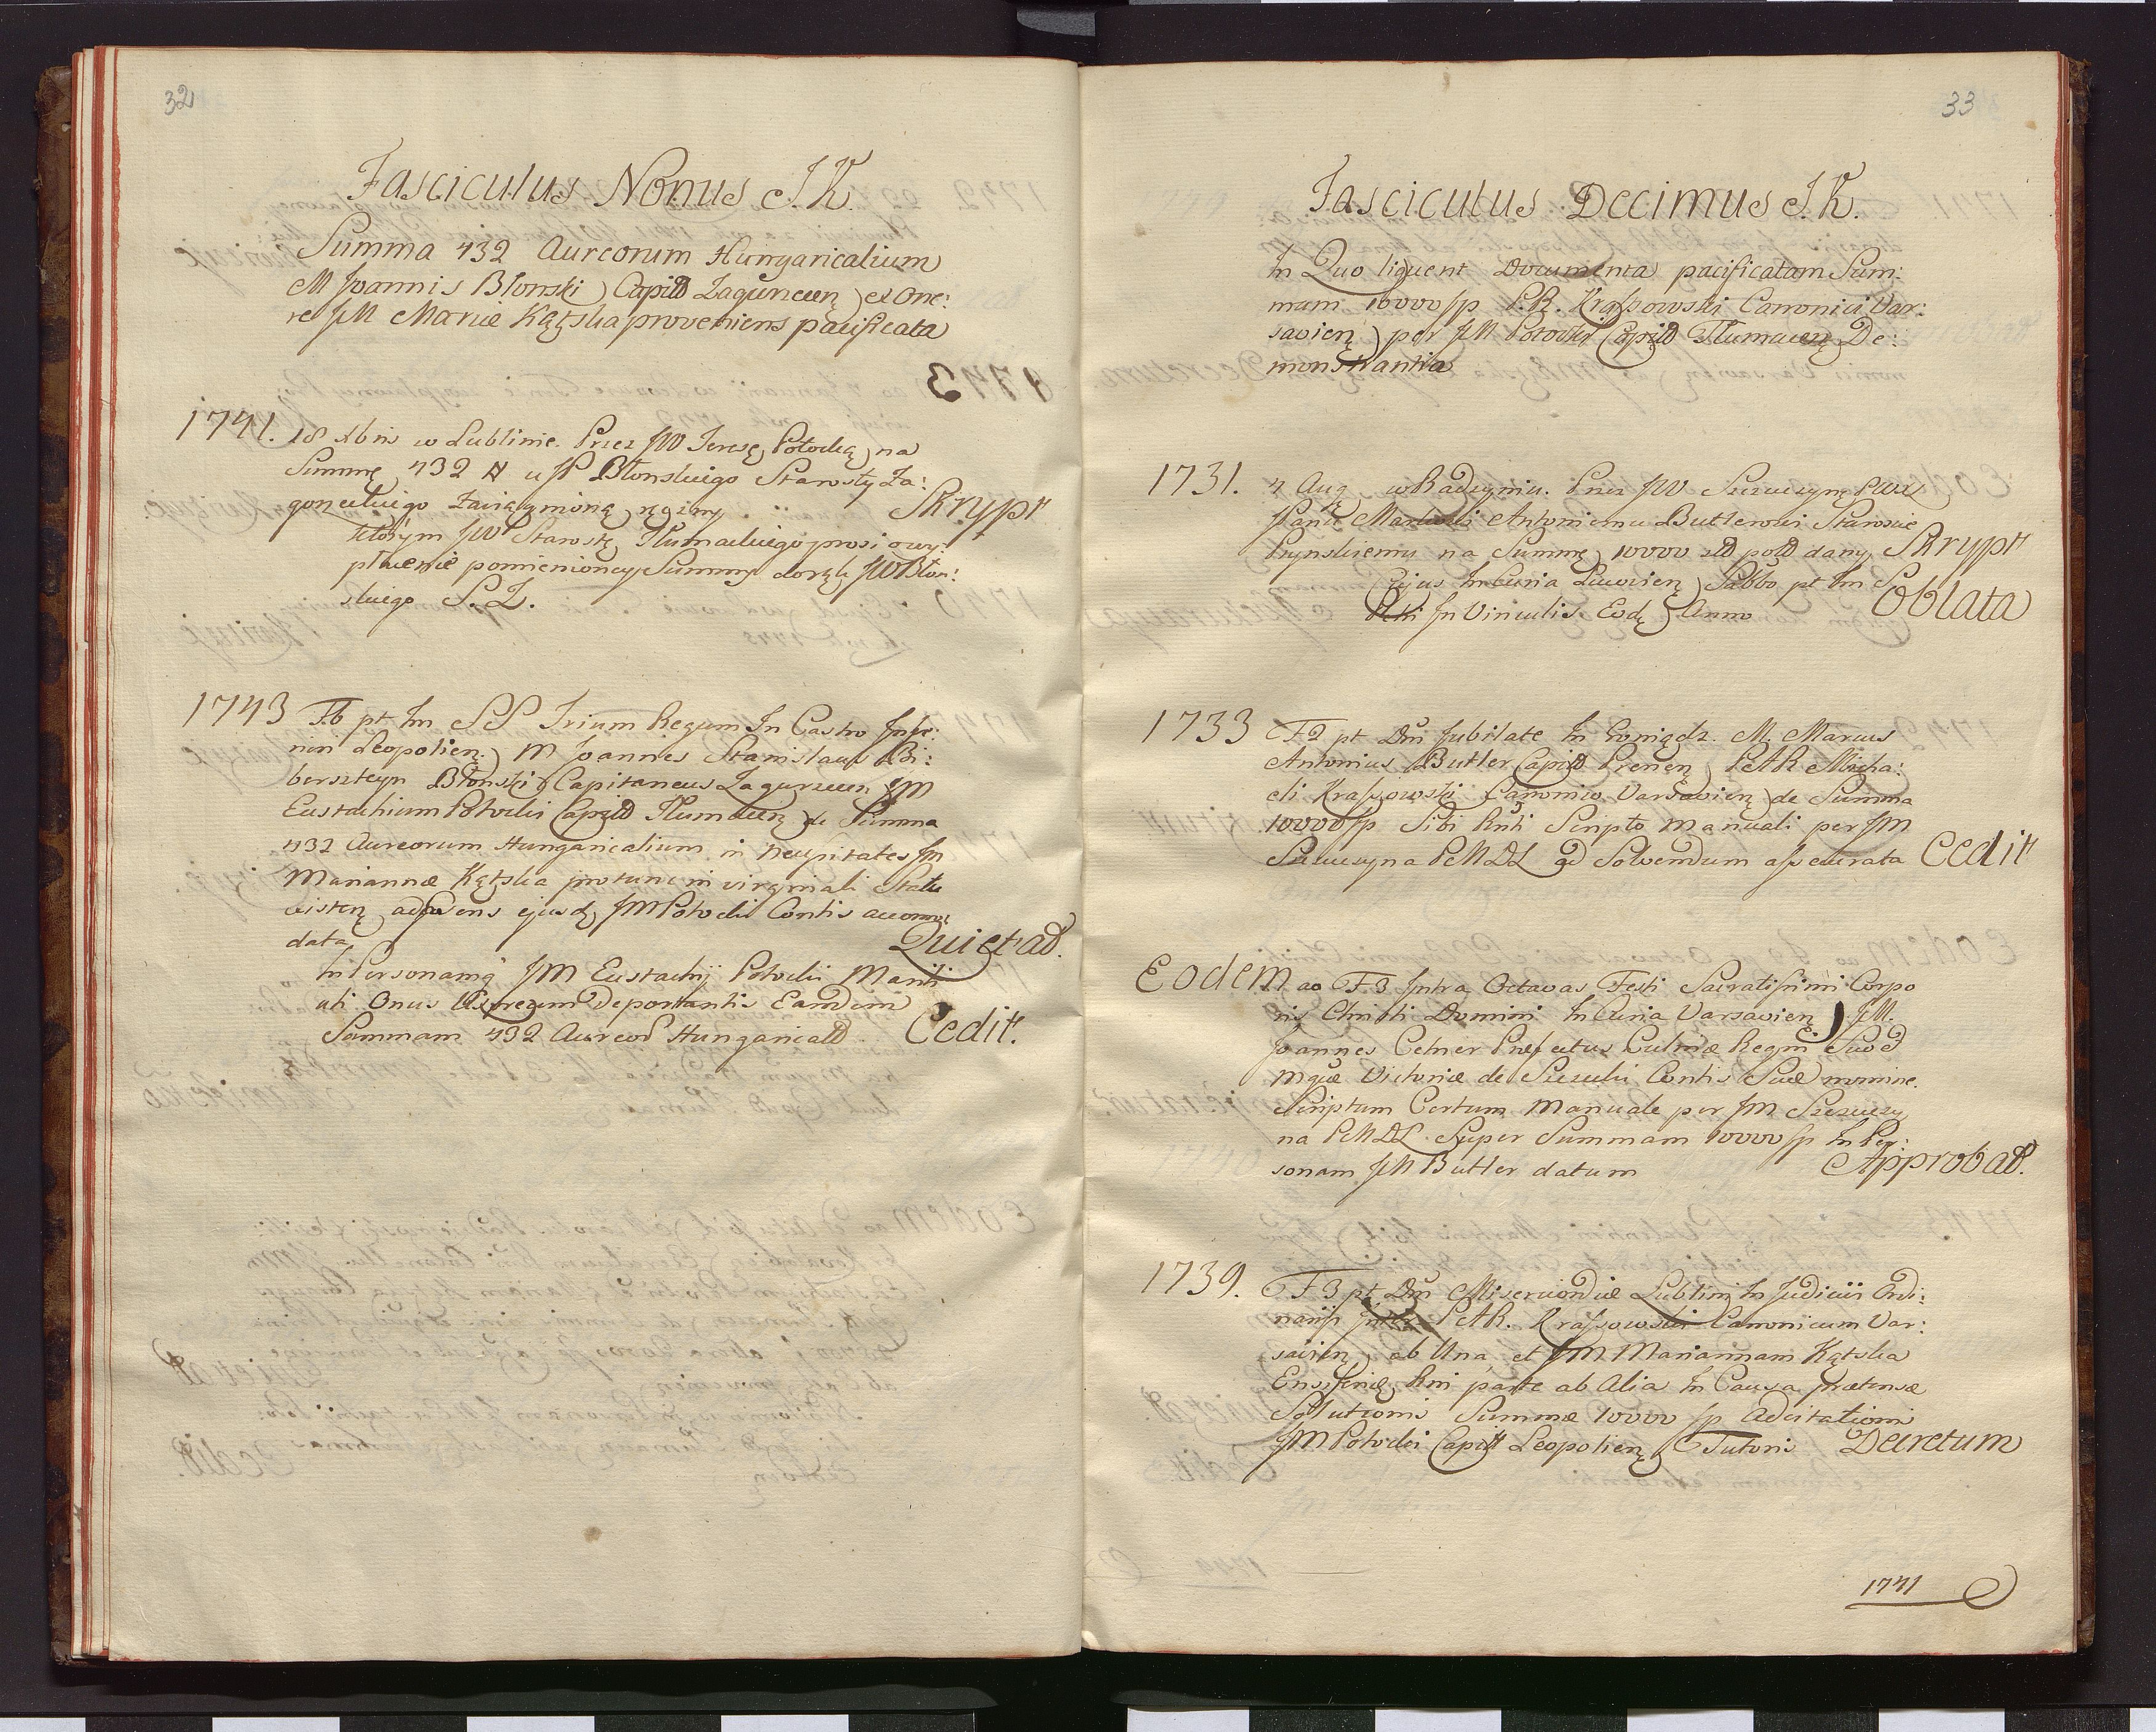 32
Fasciculus Nonus J.K.
Summa 432 Aureorum Hungaricalium
M Joannis Błonski Capitl Zagurecen ex One:
re JM Mariæ Kątska proveniens pacificata
1741. 18 Xbris w Lublinie. Przez JW Teresę Potocką na
Summę 432 # u JP Błonskiego Starosty Za:
goneckiego Zaciągnioną ręczny Skrypt
ktorym JW Starostę Tłumackiego prosi o wy:
płacenie pomienioney Summy do rąk JW Błon:
skiego S. Z.
1743 F. 6 pt Im SS Trium Regum In Castro Infe:
riori Leopolien M Joannes Stanislaus Bi:
bersteyn Błonski Capitaneus Zagurecen JM
Eustachium Potocki Capitl Tłumacen de Summa
432 Aureorum Hungaricalium in necessitates JM
Mariannæ Kątska protunc in virginali Statu
existen ad præsens ejusd JM Potocki Contis accomo:
data Quietat.
In Personamq JM Eustachij Potocki Mariti
uti Onus Uxoreum Deportantis Eandem
Summam 432 Aureor Hungarical Cedit.
33
Fasciculus Decimus J.K.
In Quo liquent Documenta pacificatam Sum:
mam 10000 fp P.R. Krassowski Canonici Var:
savien per JM Potocki Capitl Tłumacen De:
monstrantia
1731. 4 Aug w Radzyniu. Przez JW Szczuczynę PWX
Panu Markowi Antoniemu Butlerowi Staroscie
Prynskiemu na Summę 10000 zł pol dany Skrypt
Cujus In Curia Lucorien Sabbo pt Im S Oblata
Petri In Vinculis Eod Anno
1733 F 2 pt Dm Jubilate In M. Marcus
Antonius Butler Capitl Prenen PAR Micha:
eli Krassowski Canonico Varsavien de Summa
10000 fp Sibi Scripto Manuali per JM
Szczuczyna PMDL ad Solvendum assecurata Cedit
Eodem ao F 3 Intra Octavas Festi Sacratissimi Corpo
ris Christi Domini In Curia Varsavien JM.
Joannes Cetner Præfectus Culinæ Regni Suo
Mgcæ Victoriæ de Szczuki Contis Suæ nomine.
Scriptum Certum Manuale per JM Szczuczy
na PMDL Super Summam 10000 fp In Per:
sonam JM Butler datum Approbat.
1739. F 3 pt Dm Misericordiæ Lublini In Judiciis Ordi:
narijs Inter PAR. Krassowski Canonicum Var:
savien ab Una et JM Mariannam Kątska
Ensiferidę Rni parte ab Alia In Causa prætensæ
Solutionis Summæ 10000 fp Adcitationis
JM Potocki Capitl Leopolien Tutoris Decretum
1741